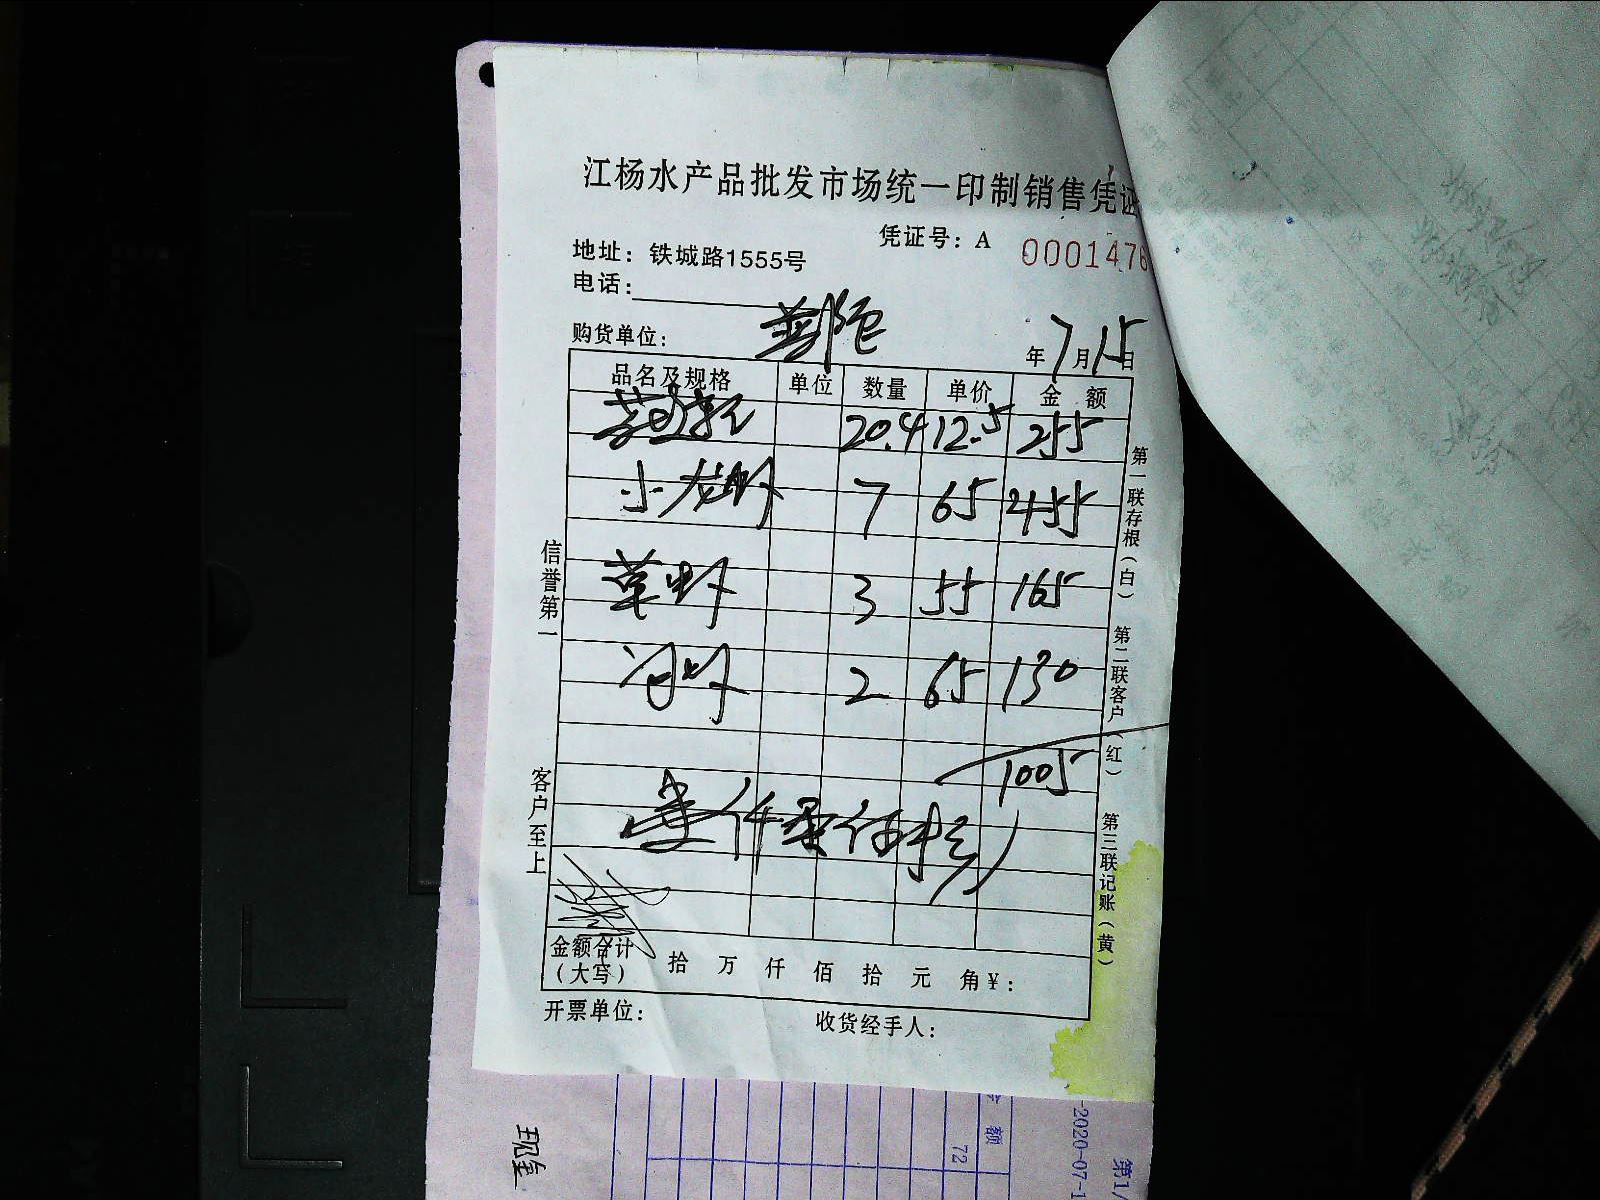 江杨水产品批发市场统一印制销售凭证
凭证号：A 0001476
地址：铁城路1555号
电话：
购货单位：
年7月15日
品名及规格 单位 数量 单价 金额
20.4 12.5 255
小龙虾 7 65 455
草虾 3 55 165
2 65 130
1005
金额合计（大写） 拾 万 仟 佰 拾 元 角 ¥：
开票单位： 收货经手人：
信誉第一
客户至上
第一联存根（白）
第二联客户（红）
第三联记账（黄）
金额
72
2020-07-1
第1/
现金